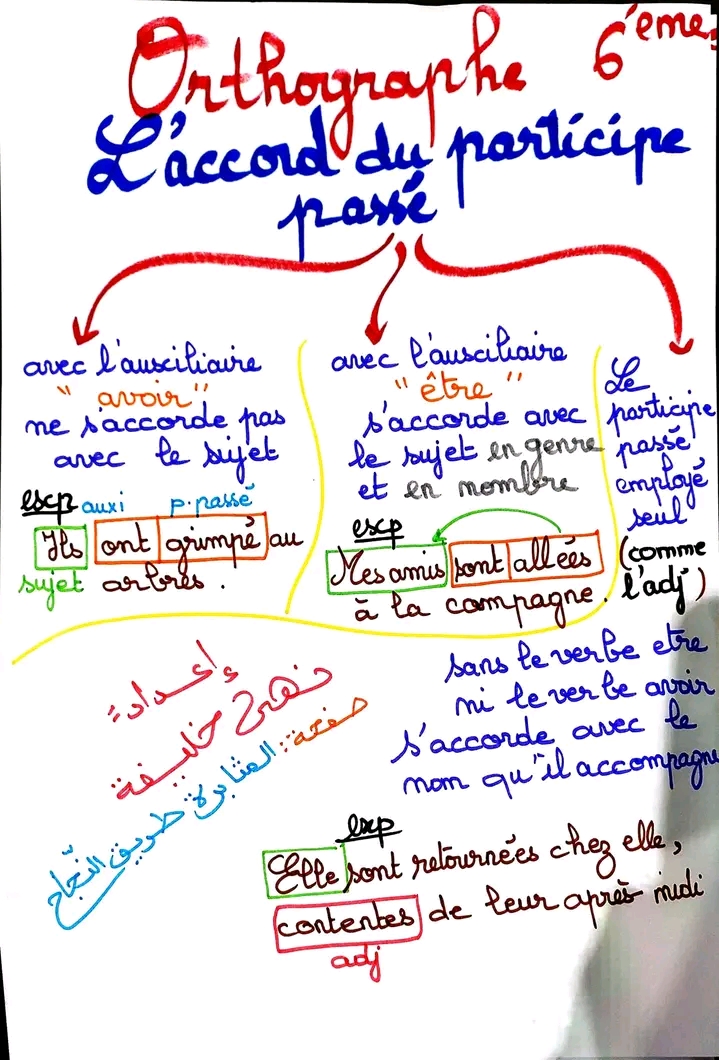 Orthographe 6ème
L'accord du participe
passé
avec l'auxciliaire
"avoir"
ne s'accorde pas
avec le sujet
exp auxi p.passé
Ils ont grimpé au
sujet arbres.
avec l'auxciliaire
"être"
s'accorde avec
le sujet en genre
et en nombre
exp
Mes amis sont allées
à la campagne.
Le
participe
passé
employé
seul
(comme
l'adj)
sans le verbe etre
ni le verbe avoir
s'accorde avec le
nom qu'il accompagne
إعداد:
نهى خليفة
صفحة: المثابرة طريق النّجاح
exp
Elle sont retournées chez elle,
contentes de leur après midi
adj